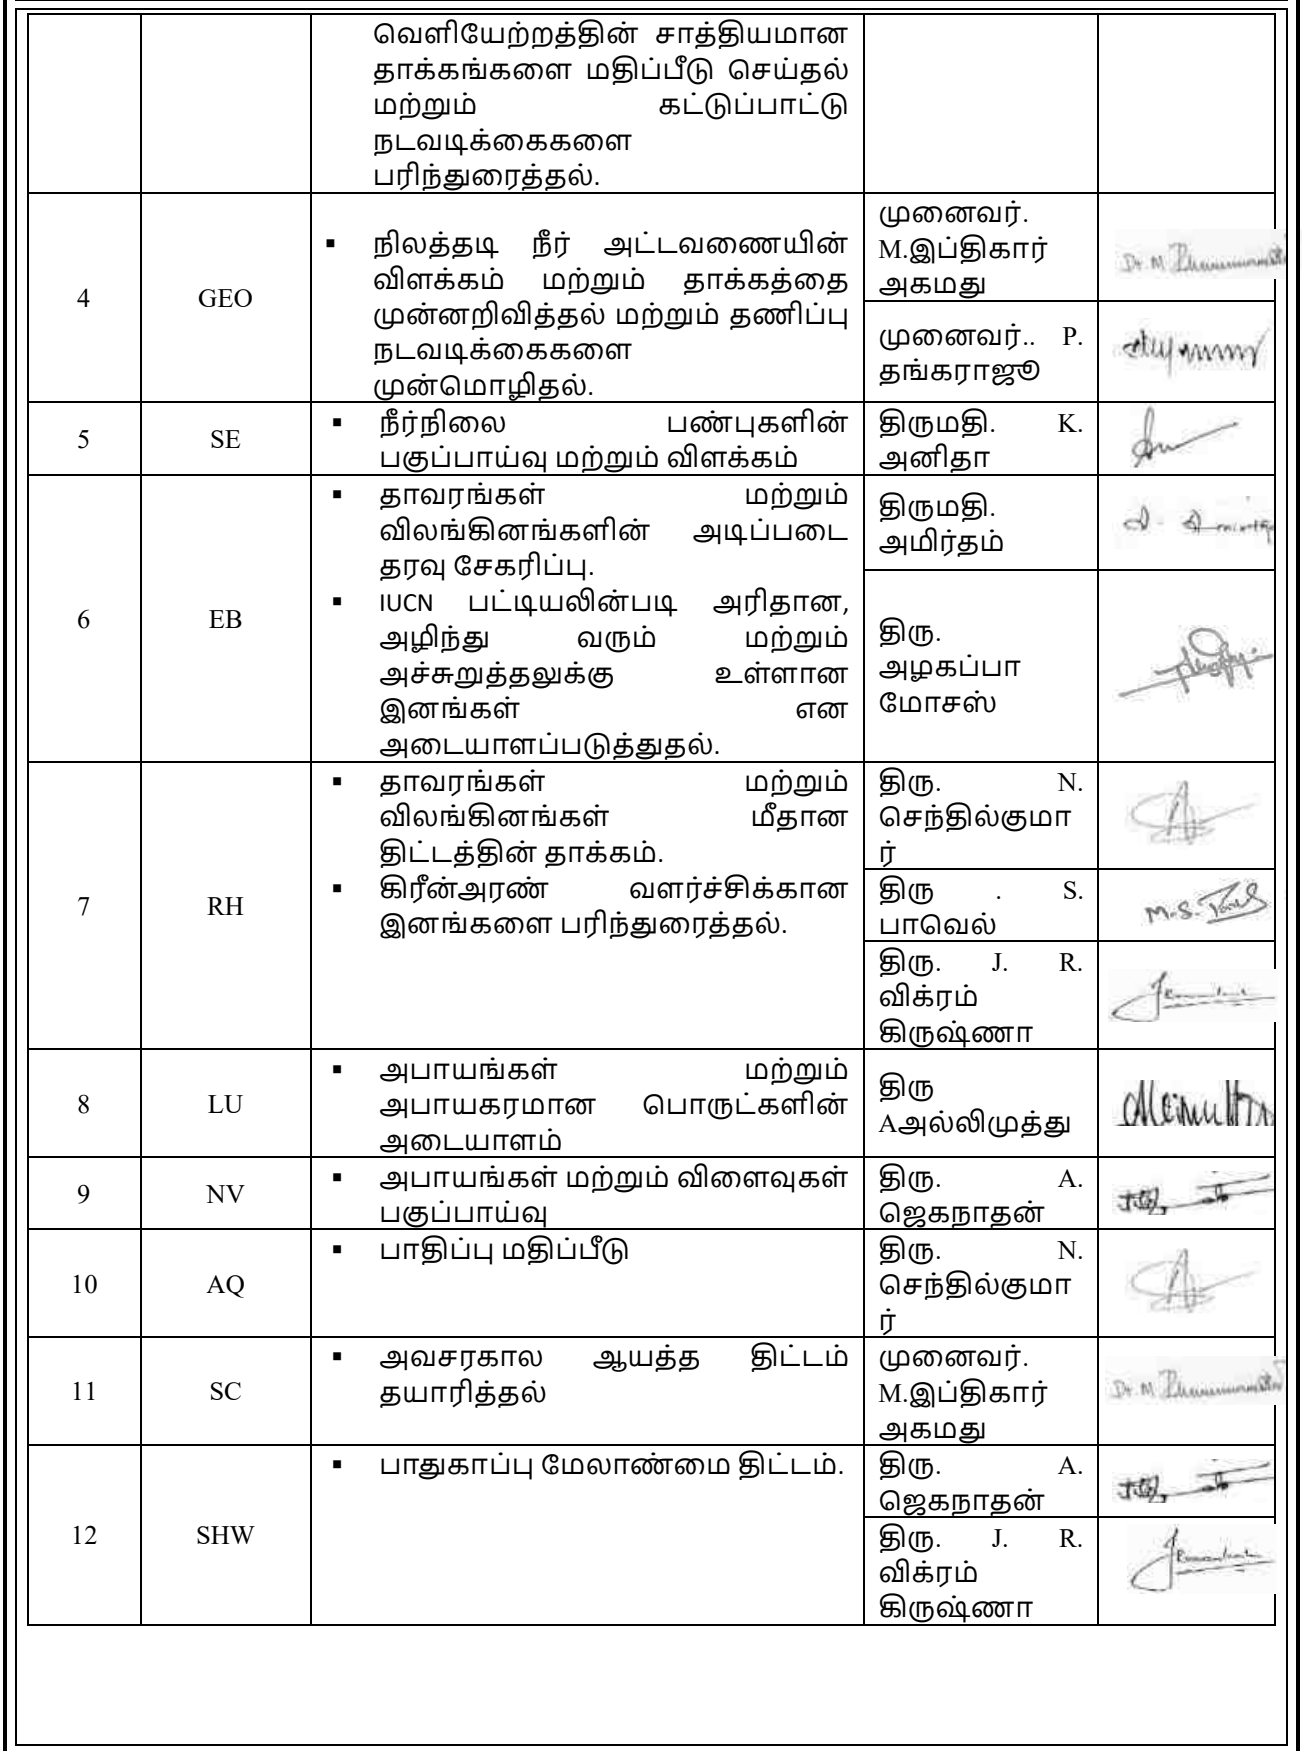 வெளியேற்றத்தின் சாத்தியமான
தாக்கங்களை மதிப்பீடு செய்தல்
மற்றும் கட்டுப்பாட்டு
நடவடிக்கைகளை
பரிந்துரைத்தல்.
4
GEO
▪ நிலத்தடி நீர் அட்டவணையின்
விளக்கம் மற்றும் தாக்கத்தை
முன்னறிவித்தல் மற்றும் தணிப்பு
நடவடிக்கைகளை
முன்மொழிதல்.
முனைவர்.
M.இப்திகார்
அகமது
Dr. M
முனைவர்.. P.
தங்கராஜூ
5
SE
▪ நீர்நிலை பண்புகளின்
பகுப்பாய்வு மற்றும் விளக்கம்
திருமதி. K.
அனிதா
6
EB
▪ தாவரங்கள் மற்றும்
விலங்கினங்களின் அடிப்படை
தரவு சேகரிப்பு.
▪ IUCN பட்டியலின்படி அரிதான,
அழிந்து வரும் மற்றும்
அச்சுறுத்தலுக்கு உள்ளான
இனங்கள் என
அடையாளப்படுத்துதல்.
திருமதி.
அமிர்தம்
திரு.
அழகப்பா
மோசஸ்
7
RH
▪ தாவரங்கள் மற்றும்
விலங்கினங்கள் மீதான
திட்டத்தின் தாக்கம்.
▪ கிரீன்அரண் வளர்ச்சிக்கான
இனங்களை பரிந்துரைத்தல்.
திரு. N.
செந்தில்குமா
ர்
திரு . S.
பாவெல்
M.S.
திரு. J. R.
விக்ரம்
கிருஷ்ணா
8
LU
▪ அபாயங்கள் மற்றும்
அபாயகரமான பொருட்களின்
அடையாளம்
திரு
Aஅல்லிமுத்து
9
NV
▪ அபாயங்கள் மற்றும் விளைவுகள்
பகுப்பாய்வு
திரு. A.
ஜெகநாதன்
10
AQ
▪ பாதிப்பு மதிப்பீடு
திரு. N.
செந்தில்குமா
ர்
11
SC
▪ அவசரகால ஆயத்த திட்டம்
தயாரித்தல்
முனைவர்.
M.இப்திகார்
அகமது
Dr. M
12
SHW
▪ பாதுகாப்பு மேலாண்மை திட்டம்.
திரு. A.
ஜெகநாதன்
திரு. J. R.
விக்ரம்
கிருஷ்ணா